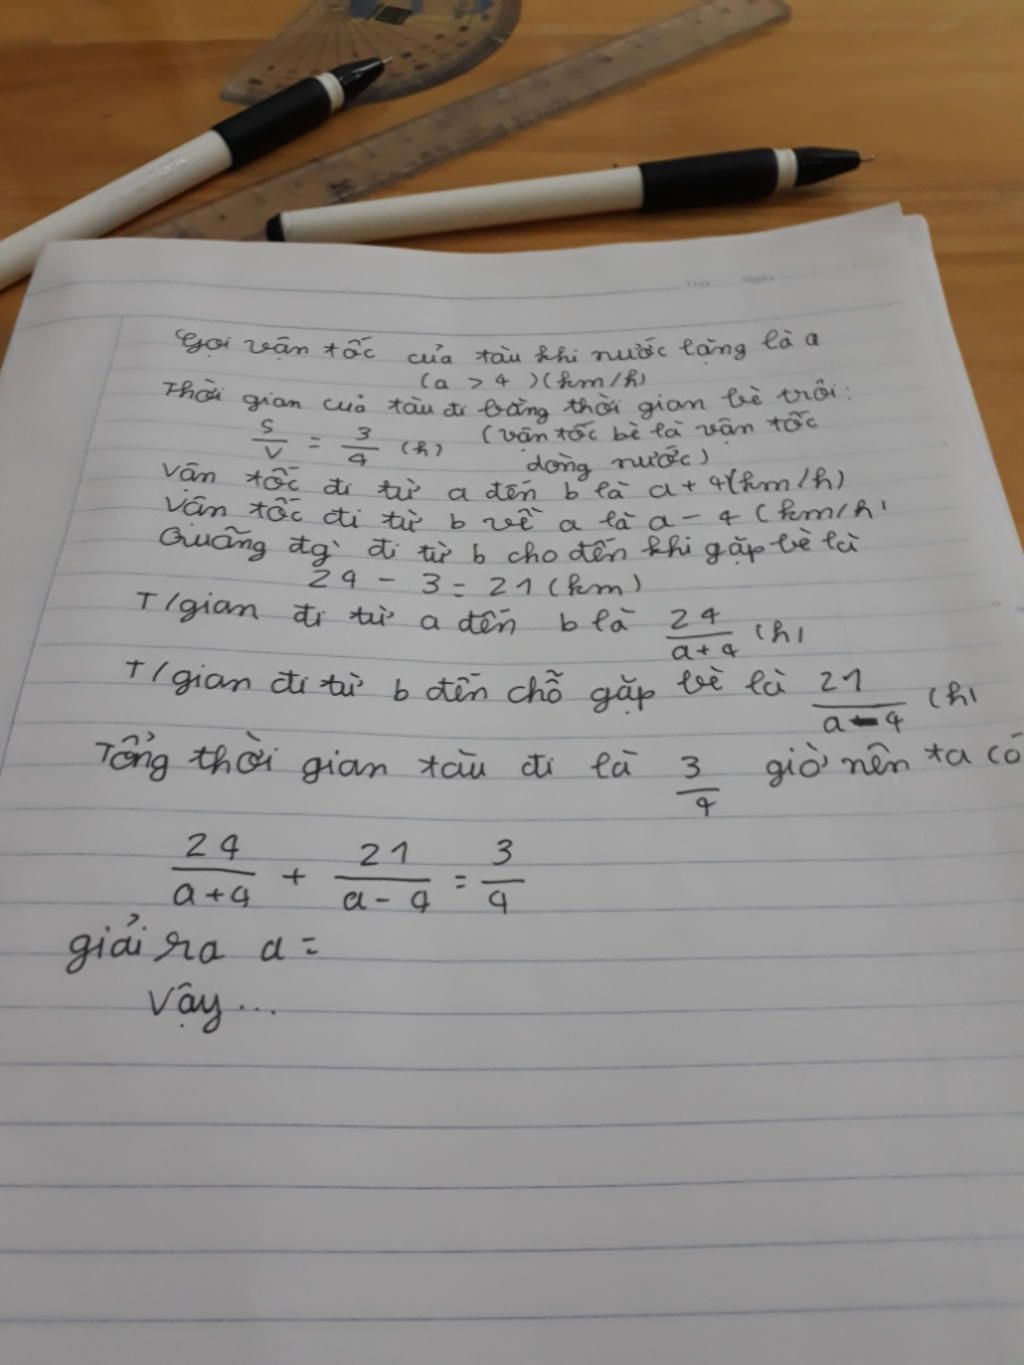 Thứ Ngày
Gọi vận tốc của tàu khi nước lặng là a
(a > 4) (km/h)
Thời gian của tàu đi bằng thời gian bè trôi:
s/v = 3/4 (h) (vận tốc bè là vận tốc
dòng nước)
vận tốc đi từ a đến b là a + 4 (km/h)
vận tốc đi từ b về a là a - 4 (km/h)
Quãng đg đi từ b cho đến khi gặp bè là
24 - 3 = 21 (km)
T/gian đi từ a đến b là 24/(a+4) (h)
T/gian đi từ b đến chỗ gặp bè là 21/(a-4) (h)
Tổng thời gian tàu đi là 3/4 giờ nên ta có
24/(a+4) + 21/(a-4) = 3/4
giải ra a =
Vậy ...